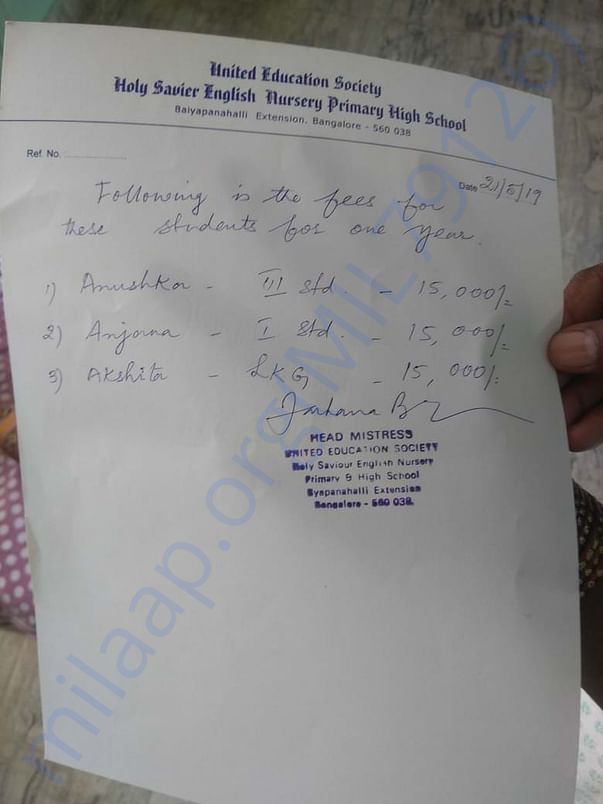 United Education Society
Holy Savier English Nursery Primary High School
Baiyapanahalli Extension, Bangalore - 560 038
Ref. No. ....................
Date 21/5/19
Following is the fees for
these students for one year.
1) Anushka - III Std. - 15,000/-
2) Anjana - I Std. - 15,000/-
3) Akshita - LKG - 15,000/-
Farhana B
HEAD MISTRESS
UNITED EDUCATION SOCIETY
Holy Saviour English Nursery
Primary & High School
Byapanahalli Extension
Bangalore - 560 038.
milaap.org/MIL79126